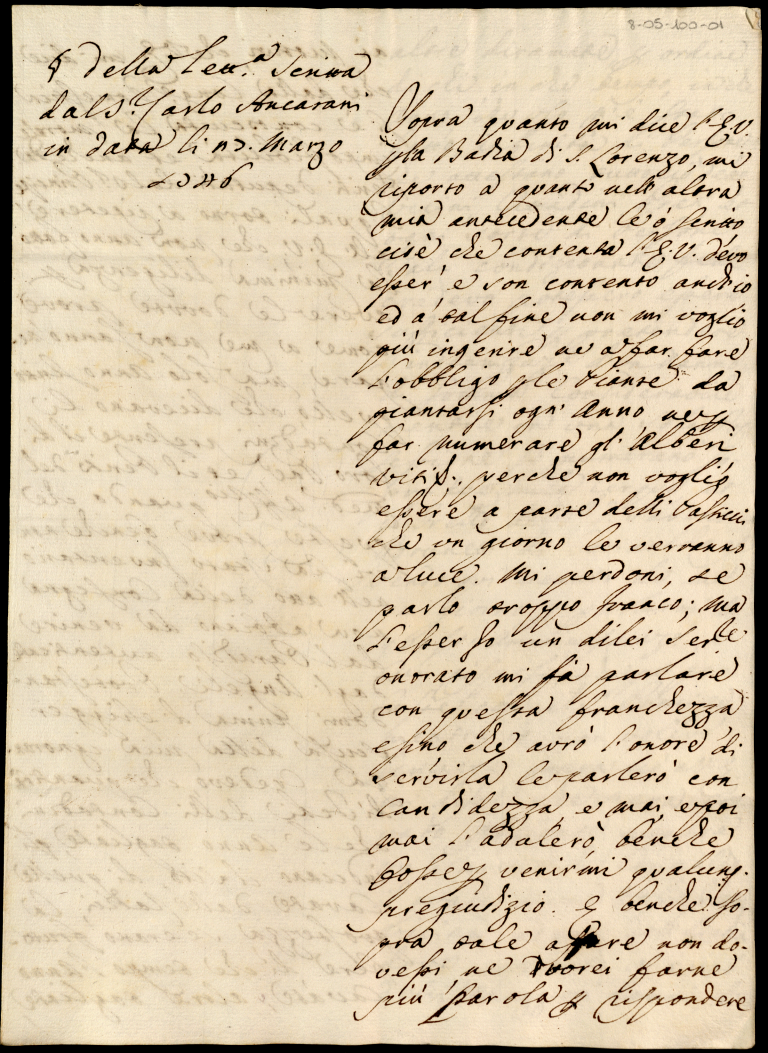 8-05-100-01
§ della lett.ª scritta
dal S.r Carlo Ancarani
in data li 23. Marzo
1746
Sopra quanto mi dice l'E.V.
p la Badia di S. Lorenzo, mi
riporto a quanto nell'altra
mia antecedente le ò scritto
cioè che contenta l'E.V. devo
esser' e son contento anch'io
ed a tal fine non mi voglio
più ingerire ne a far fare
l'obbligo p le Piante da
piantarsi ogn'Anno ne p
far numerare gl'Alberi
vitti. perche non voglio
essere a parte delli Pasticci
che un giorno le verranno
a luce. Mi perdoni, se
parlo troppo franco; ma
l'esser Io un di lei Ser.e
onorato mi fà parlare
con questa franchezza
e sino che avrò l'onore di
servirla le parlerò con
Candidezza, e mai, e poi
mai l'adulerò, benche
fosse p venirmi qualunq.
pregiudizio. e benche so-
pra tale affare non do-
vessi, ne vorrei farne
più Parola p rispondere